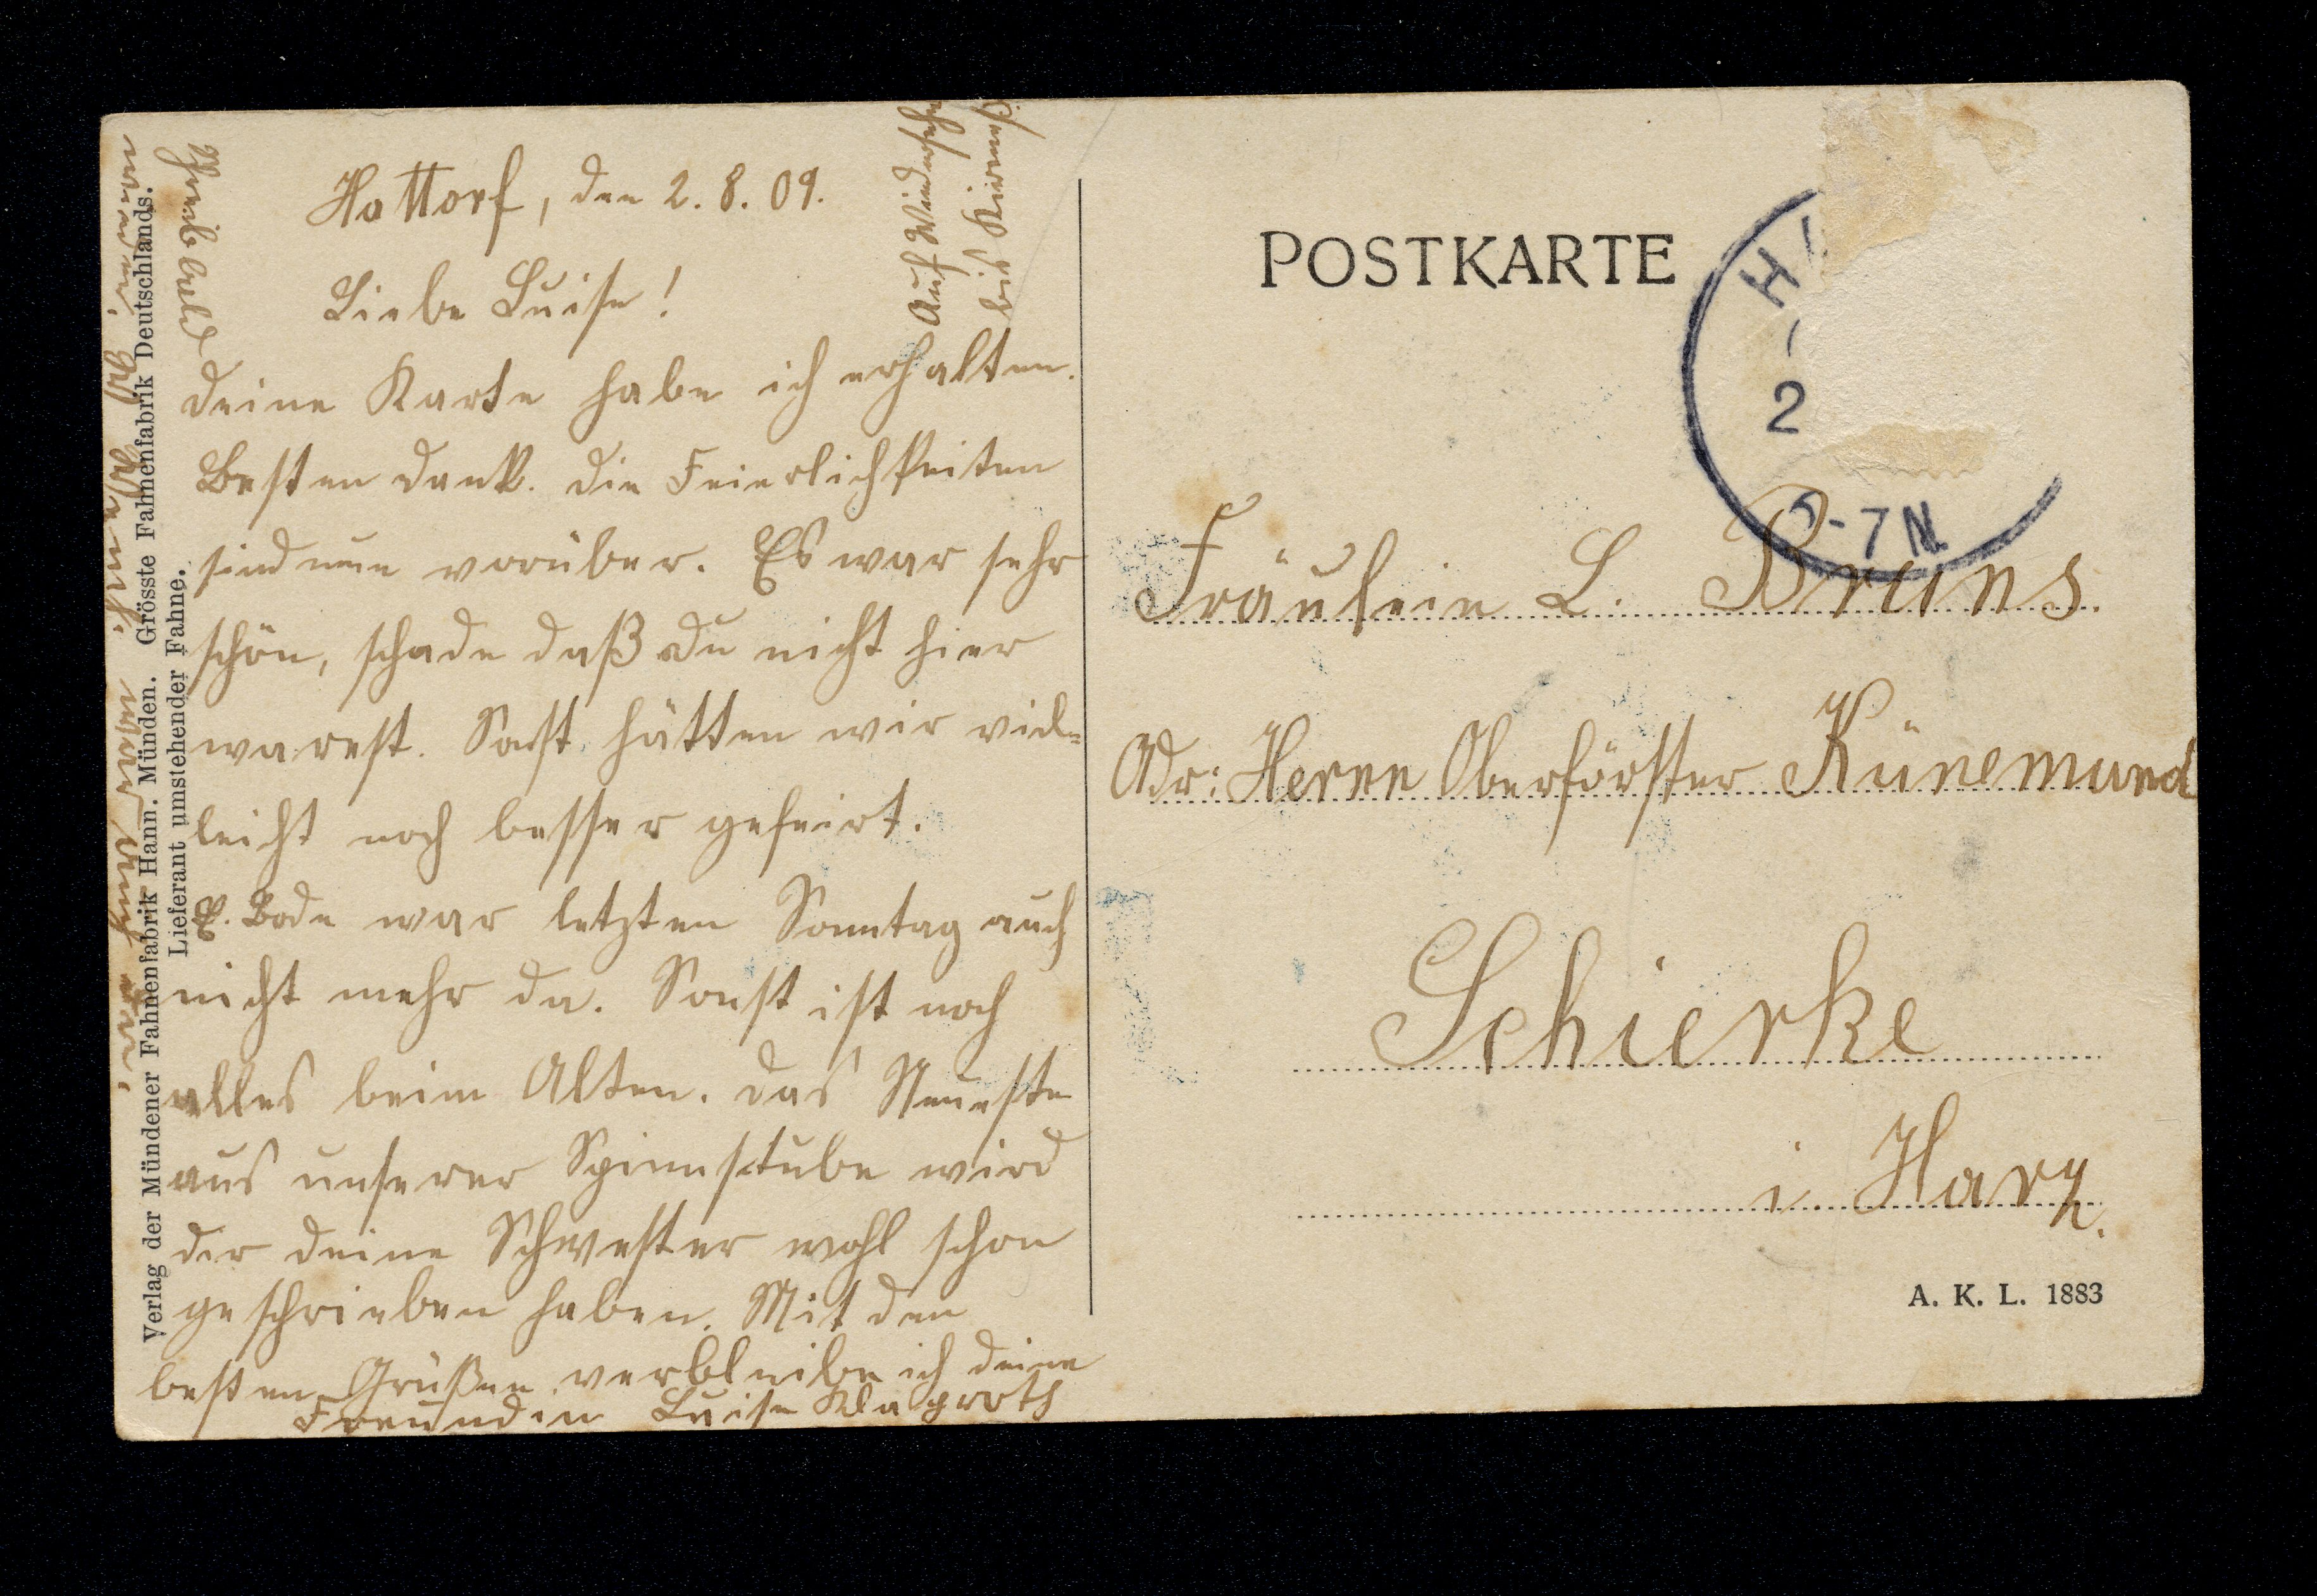 Hattorf, den 2. 8. 09.
Liebe Luise!
Deine Karte habe ich erhalten.
Besten Dank. Die Feierlichkeiten
sind nun vorüber. Es war sehr
schön, schade daß Du nicht hier
warest. Sonst hätten wir viel-
leicht noch besser gefeirt.
Bode war letzten Sonntag auch
nicht mehr da. Sonst ist noch
alles beim Alten. Das Neueste
aus unserer Spinnstube wird
dir deine Schwester wohl schon
geschrieben haben. Mit den
besten Grüßen verbleibe ich deine
Freundin Luise Klaproth
Auf Wiedersehn
bis Kirmeß
Schreib bald
Verlag der Mündener Fahnenfabrik Hann. Münden. Grösste Fahnenfabrik Deutschlands.
Lieferant umstehender Fahne.
POSTKARTE
H
2
-7 N.
Fräulein L. Bruns.
Adr: Herrn Oberförster Künemund
Schierke
i. Harz.
A. K. L. 1883